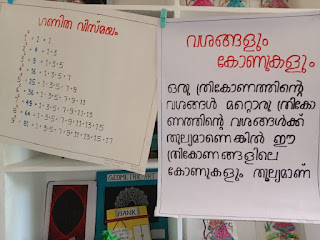 ഗണിത വിസ്മയം
1² = 1
2² = 4 = 1+3
3² = 9 = 1+3+5
4² = 16 = 1+3+5+7
5² = 25 = 1+3+5+7+9
6² = 36 = 1+3+5+7+9+11
7² = 49 = 1+3+5+7+9+11+13
8² = 64 = 1+3+5+7+9+11+13+15
9² = 81 = 1+3+5+7+9+11+13+15+17
വശങ്ങളും
കോണുകളും
ഒരു ത്രികോണത്തിന്റെ
വശങ്ങൾ മറ്റൊരു ത്രികോ
ണത്തിന്റെ വശങ്ങൾക്ക്
തുല്യമാണെങ്കിൽ ഈ
ത്രികോണങ്ങളിലെ
കോണുകളും തുല്യമാണ്
GEOMETRIC ART
BANK